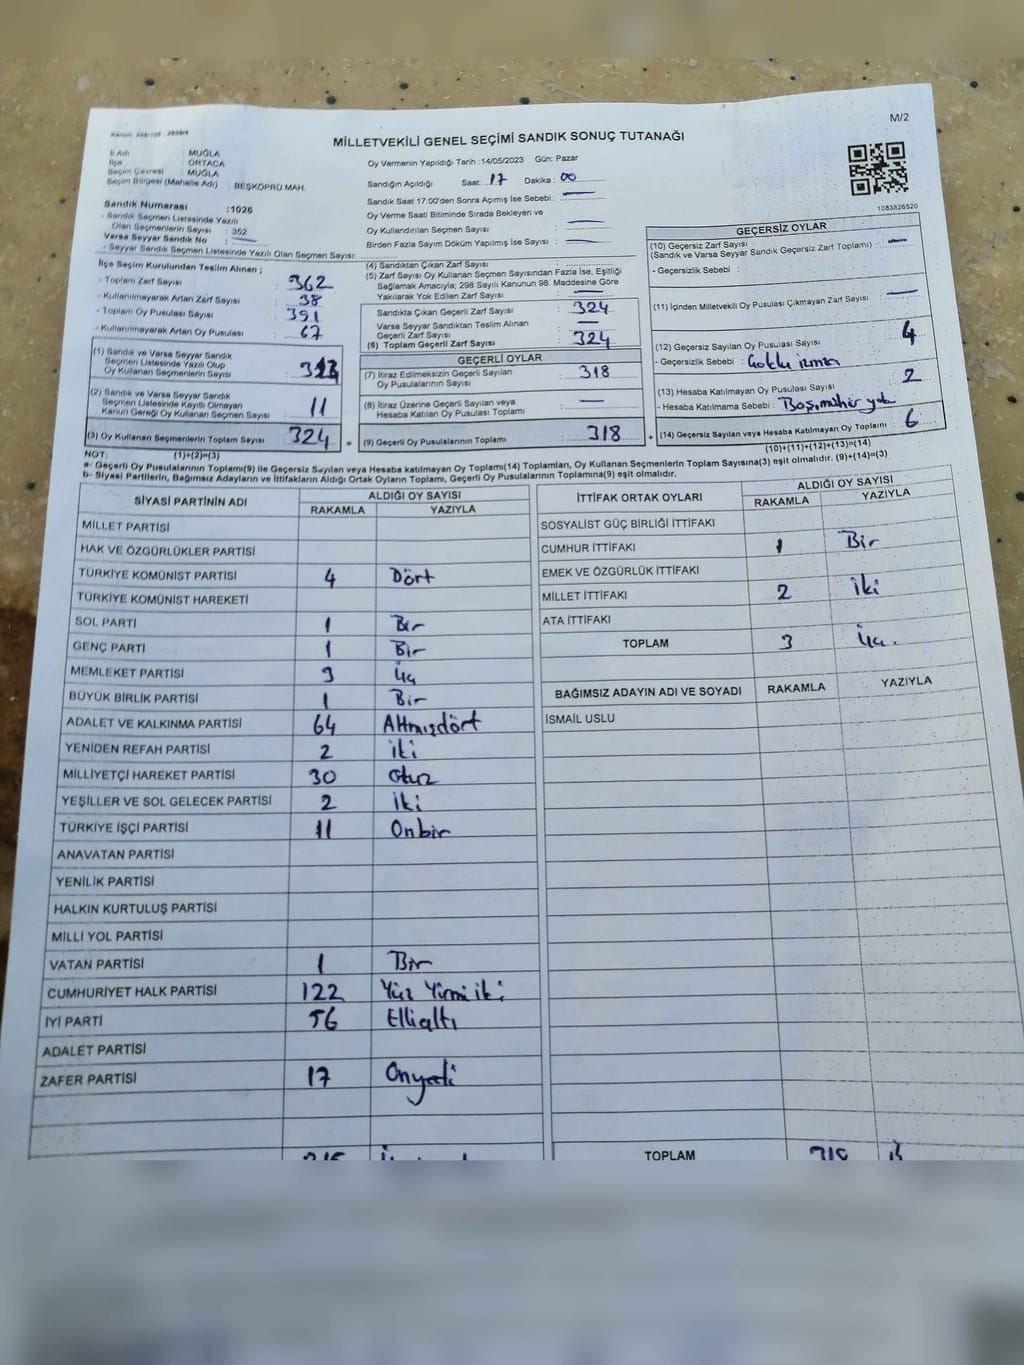 M/2
MİLLETVEKİLİ GENEL SEÇİMİ SANDIK SONUÇ TUTANAĞI
İl Adı : MUĞLA
İlçe : ORTACA
Seçim Çevresi : MUĞLA
Seçim Bölgesi (Mahalle Adı) : BEŞKÖPRÜ MAH.
Oy Vermenin Yapıldığı Tarih : 14/05/2023 Gün: Pazar
Sandığın Açıldığı Saat: 17 Dakika: 00
Sandık Saat 17:00'den Sonra Açımış İse Sebebi :
Oy Verme Saati Bitiminde Sırada Bekleyen ve
Oy Kullandırılan Seçmen Sayısı :
Birden Fazla Sayım Döküm Yapılmış İse Sayısı :
1083826520
Sandık Numarası :1026
- Sandık Seçmen Listesinde Yazılı
Olan Seçmen Sayısı : 352
Varsa Seyyar Sandık No :
- Seyyar Sandık Seçmen Listesinde Yazılı Olan Seçmen Sayısı:
İlçe Seçim Kurulundan Teslim Alınan ;
- Toplam Zarf Sayısı : 362
- Kullanılmayarak Artan Zarf Sayısı : 38
- Toplam Oy Pusulası Sayısı : 391
- Kullanılmayarak Artan Oy Pusulası : 67
(1) Sandık ve Varsa Seyyar Sandık
Seçmen Listesinde Yazılı Olup
Oy Kullanan Seçmenlerin Sayısı : 313
(2) Sandık ve Varsa Seyyar Sandık
Seçmen Listesinde Kayıtlı Olmayan
Kanun Gereği Oy Kullanan Seçmen Sayısı : 11
(3) Oy Kullanan Seçmenlerin Toplam Sayısı : 324
(4) Sandıktan Çıkan Zarf Sayısı :
(5) Zarf Sayısı Oy Kullanan Seçmen Sayısından Fazla İse, Eşitliği
Sağlamak Amacıyla; 298 Sayılı Kanunun 98. Maddesine Göre
Yakılarak Yok Edilen Zarf Sayısı :
Sandıkta Çıkan Geçerli Zarf Sayısı : 324
Varsa Seyyar Sandıktan Teslim Alınan
Geçerli Zarf Sayısı :
(6) Toplam Geçerli Zarf Sayısı : 324
GEÇERLİ OYLAR
(7) İtiraz Edilmeksizin Geçerli Sayılan
Oy Pusulalarının Sayısı : 318
(8) İtiraz Üzerine Geçerli Sayılan veya
Hesaba Katılan Oy Pusulası Toplamı :
= (9) Geçerli Oy Pusulalarının Toplamı : 318
GEÇERSİZ OYLAR
(10) Geçersiz Zarf Sayısı
(Sandık ve Varsa Seyyar Sandık Geçersiz Zarf Toplamı) :
- Geçersizlik Sebebi :
(11) İçinden Milletvekili Oy Pusulası Çıkmayan Zarf Sayısı :
(12) Geçersiz Sayılan Oy Pusulası Sayısı : 4
- Geçersizlik Sebebi :
(13) Hesaba Katılmayan Oy Pusulası Sayısı : 2
- Hesaba Katılmama Sebebi : Boş, mühür yok
+ (14) Geçersiz Sayılan veya Hesaba Katılmayan Oy Toplamı : 6
NOT: (1)+(2)=(3)
(10)+(11)+(12)+(13)=(14)
a- Geçerli Oy Pusulalarının Toplamı(9) ile Geçersiz Sayılan veya Hesaba katılmayan Oy Toplamı(14) Toplamları, Oy Kullanan Seçmenlerin Toplam Sayısına(3) eşit olmalıdır. (9)+(14)=(3)
b- Siyasi Partilerin, Bağımsız Adayların ve İttifakların Aldığı Ortak Oyların Toplamı, Geçerli Oy Pusulalarının Toplamına(9) eşit olmalıdır.
SİYASİ PARTİNİN ADI ALDIĞI OY SAYISI
RAKAMLA YAZIYLA
MİLLET PARTİSİ
HAK VE ÖZGÜRLÜKLER PARTİSİ
TÜRKİYE KOMÜNİST PARTİSİ 4 Dört
TÜRKİYE KOMÜNİST HAREKETİ
SOL PARTİ 1 Bir
GENÇ PARTİ 1 Bir
MEMLEKET PARTİSİ 3 Üç
BÜYÜK BİRLİK PARTİSİ 1 Bir
ADALET VE KALKINMA PARTİSİ 64 Altmışdört
YENİDEN REFAH PARTİSİ 2 İki
MİLLİYETÇİ HAREKET PARTİSİ 30 Otuz
YEŞİLLER VE SOL GELECEK PARTİSİ 2 İki
TÜRKİYE İŞÇİ PARTİSİ 11 Onbir
ANAVATAN PARTİSİ
YENİLİK PARTİSİ
HALKIN KURTULUŞ PARTİSİ
MİLLİ YOL PARTİSİ
VATAN PARTİSİ 1 Bir
CUMHURİYET HALK PARTİSİ 122 Yüz Yirmi iki
İYİ PARTİ 56 Ellialtı
ADALET PARTİSİ
ZAFER PARTİSİ 17 Onyedi
İTTİFAK ORTAK OYLARI ALDIĞI OY SAYISI
RAKAMLA YAZIYLA
SOSYALİST GÜÇ BİRLİĞİ İTTİFAKI
CUMHUR İTTİFAKI 1 Bir
EMEK VE ÖZGÜRLÜK İTTİFAKI
MİLLET İTTİFAKI 2 İki
ATA İTTİFAKI
TOPLAM 3 Üç.
BAĞIMSIZ ADAYIN ADI VE SOYADI RAKAMLA YAZIYLA
İSMAİL USLU
TOPLAM